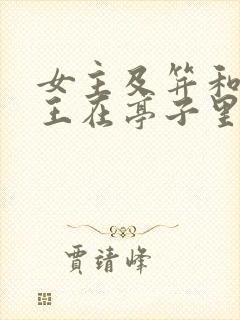 女主及笄和
王在亭子里
贾靖峰